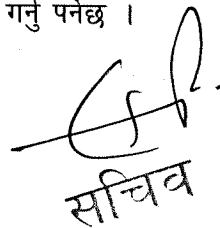 गर्नु पर्नेछ ।
सचिव